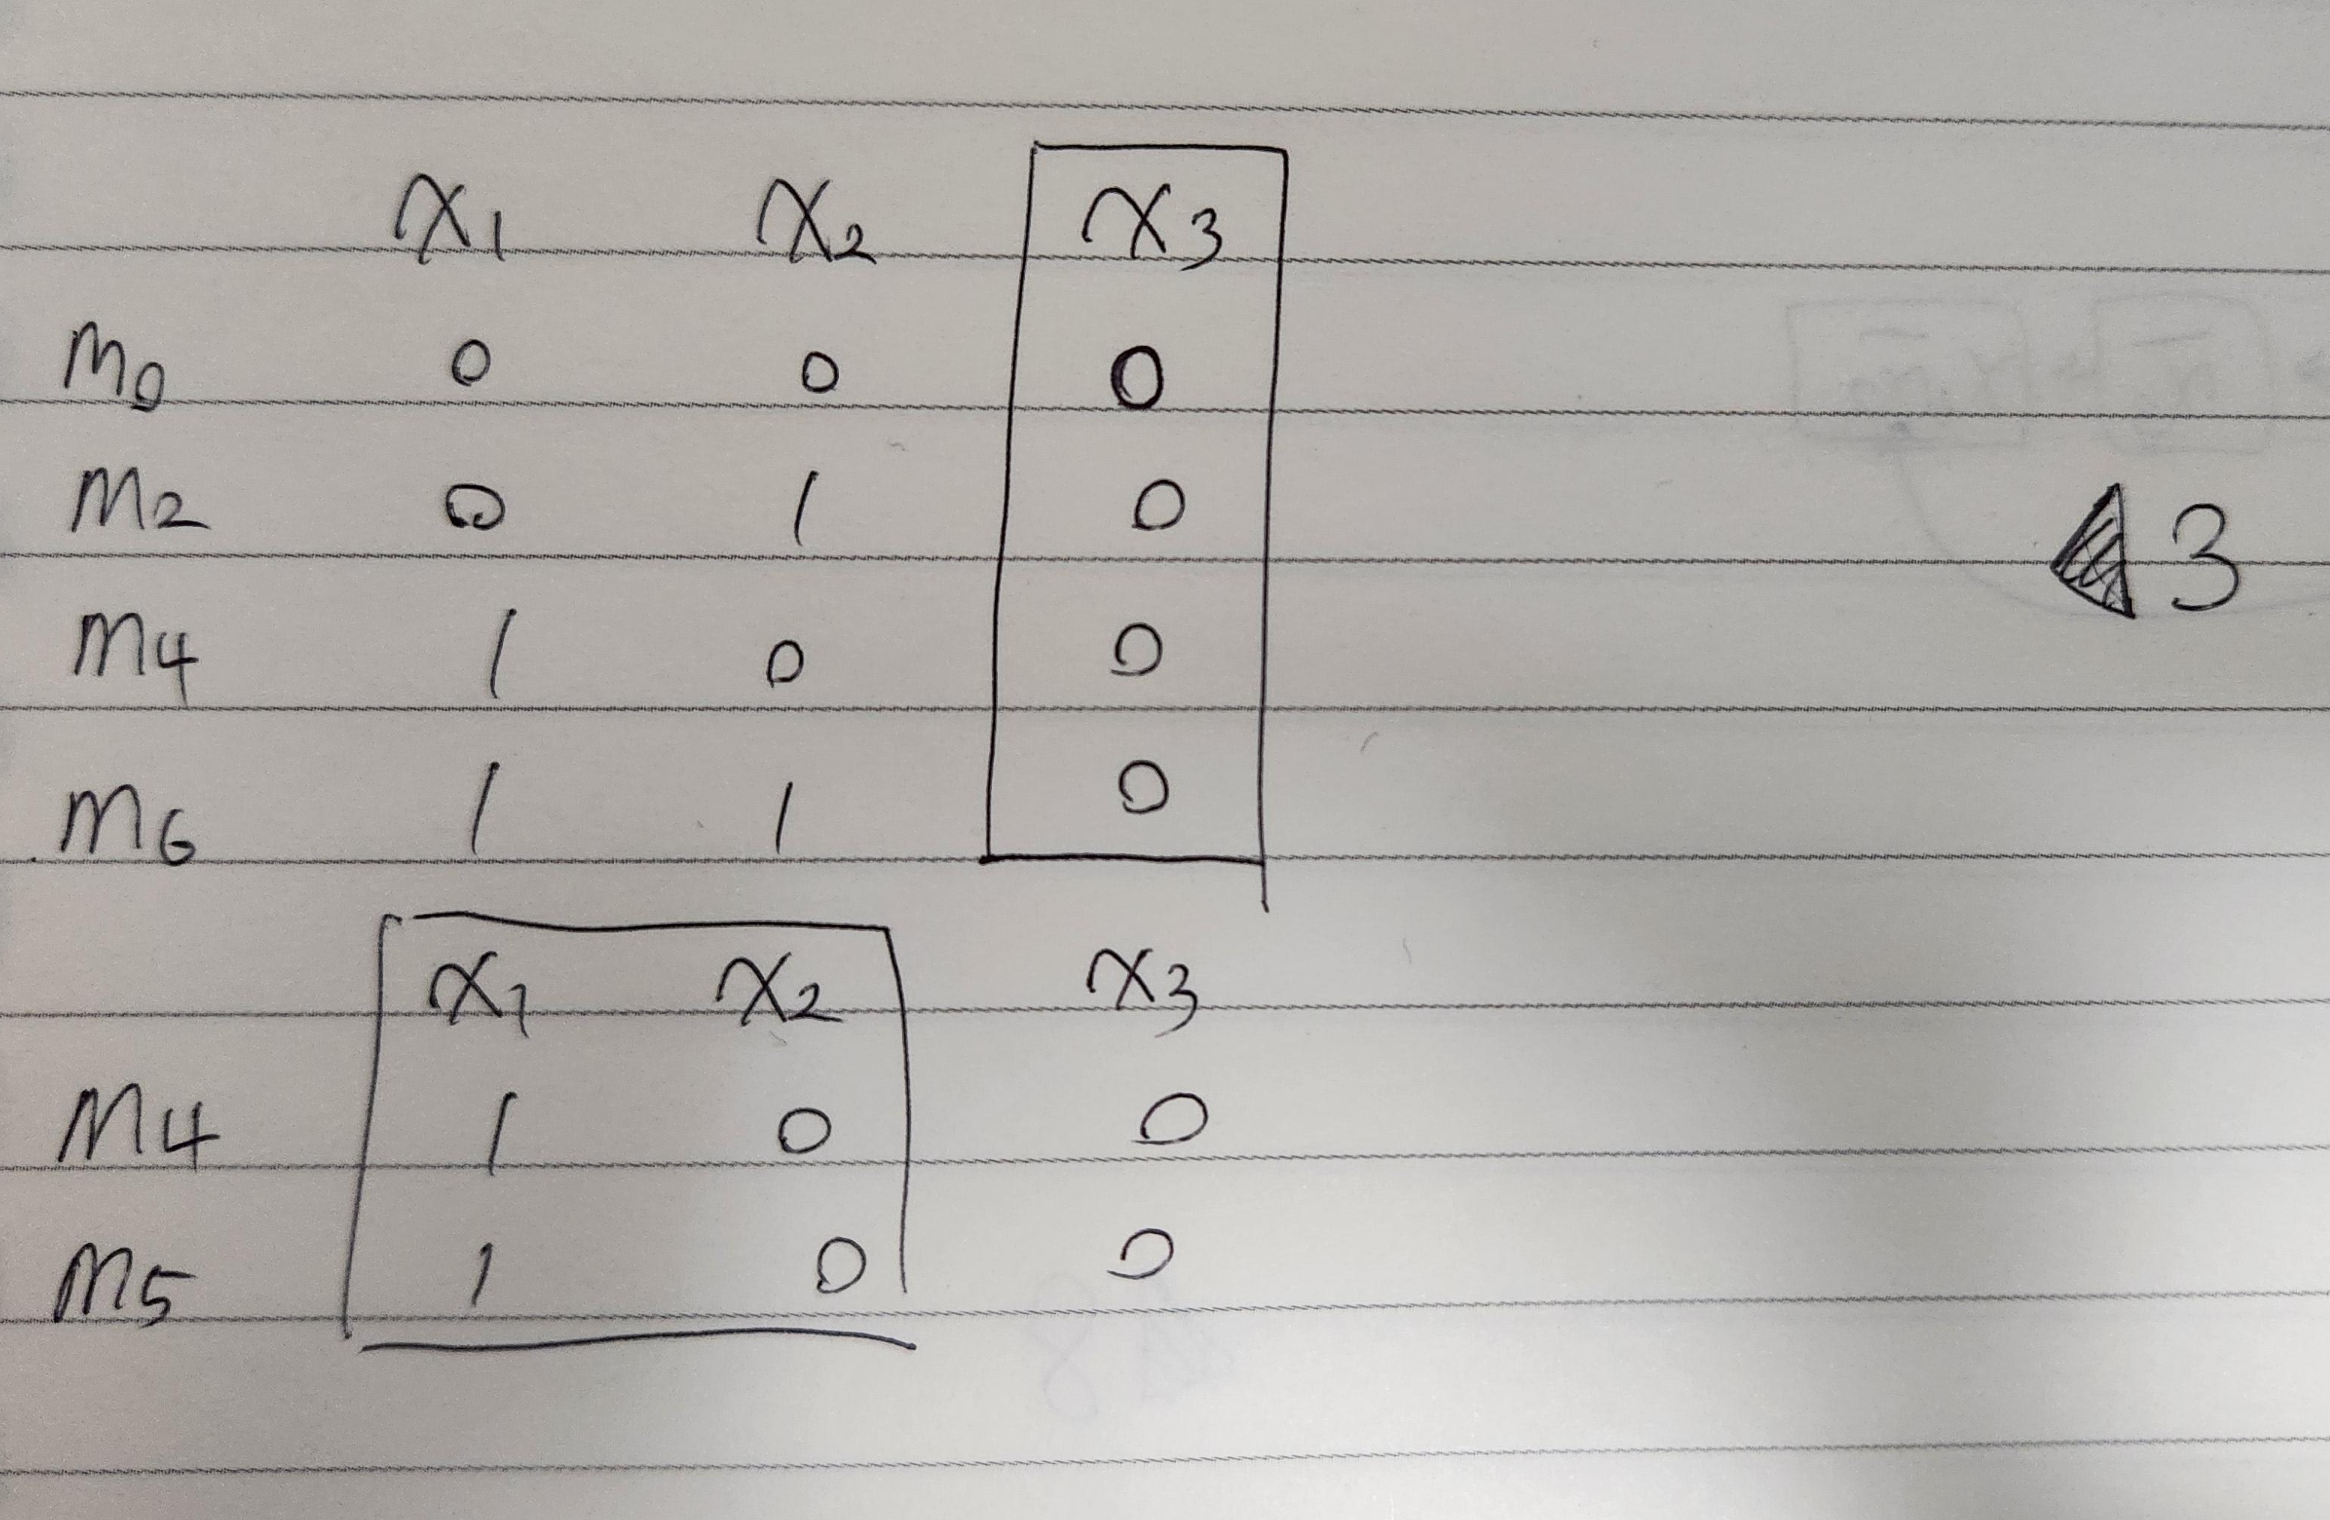 x1 x2 x3
m0 0 0 0
m2 0 1 0
3
m4 1 0 0
m6 1 1 0
x1 x2 x3
m4 1 0 0
m5 1 0 0